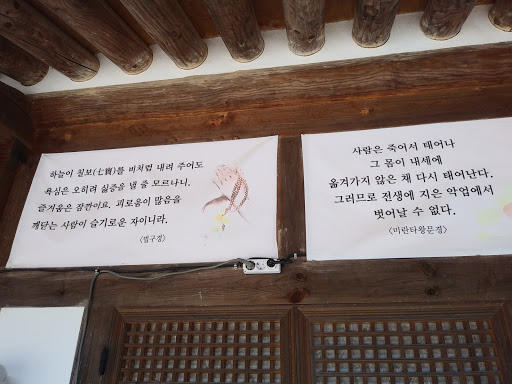 하늘이 칠보(七寶)를 비처럼 내려 주어도
욕심은 오히려 싫증을 낼 줄 모르나니.
즐거움은 잠깐이요. 괴로움이 많음을
깨닫는 사람이 슬기로운 자이니라.
<법구경>
사람은 죽어서 태어나
그 몸이 내세에
옮겨가지 않은 채 다시 태어난다.
그러므로 전생에 지은 악업에서
벗어날 수 없다.
<미란타왕문경>